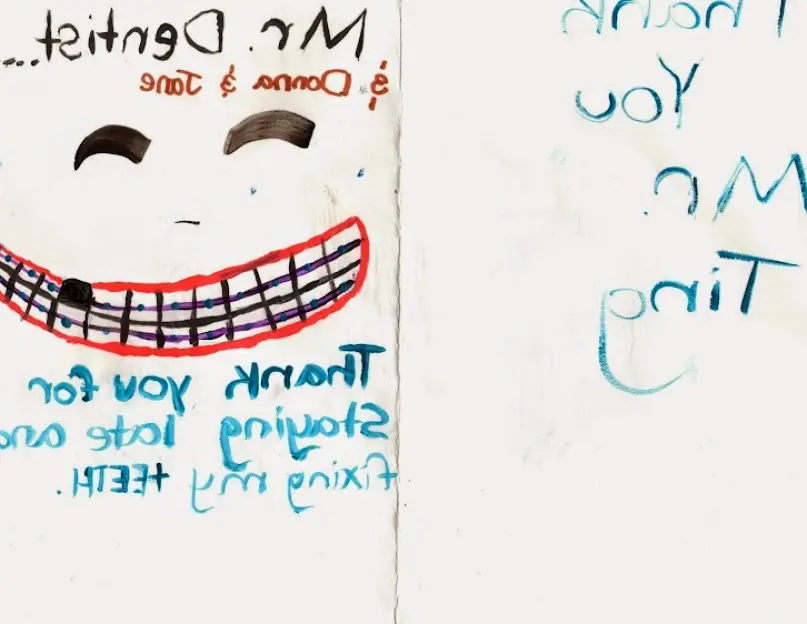 Thank
You
Mr.
Ting
Mr. Dentist....
& Donna & Jane
Thank you for
staying late and
fixing my TEETH.